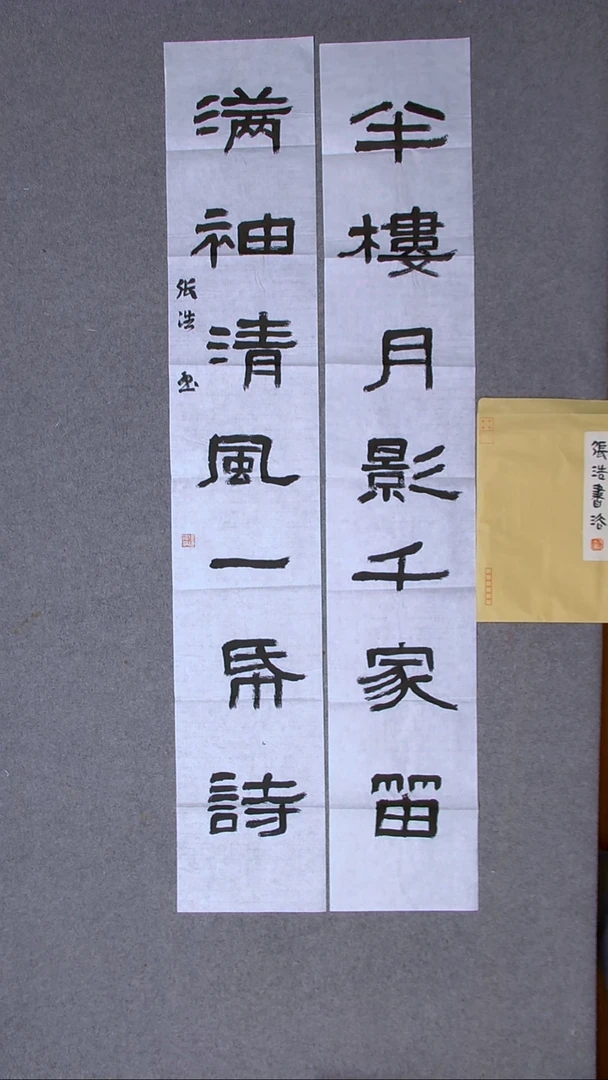 半樓月影千家笛
满袖清風一帋詩
张浩
張浩書